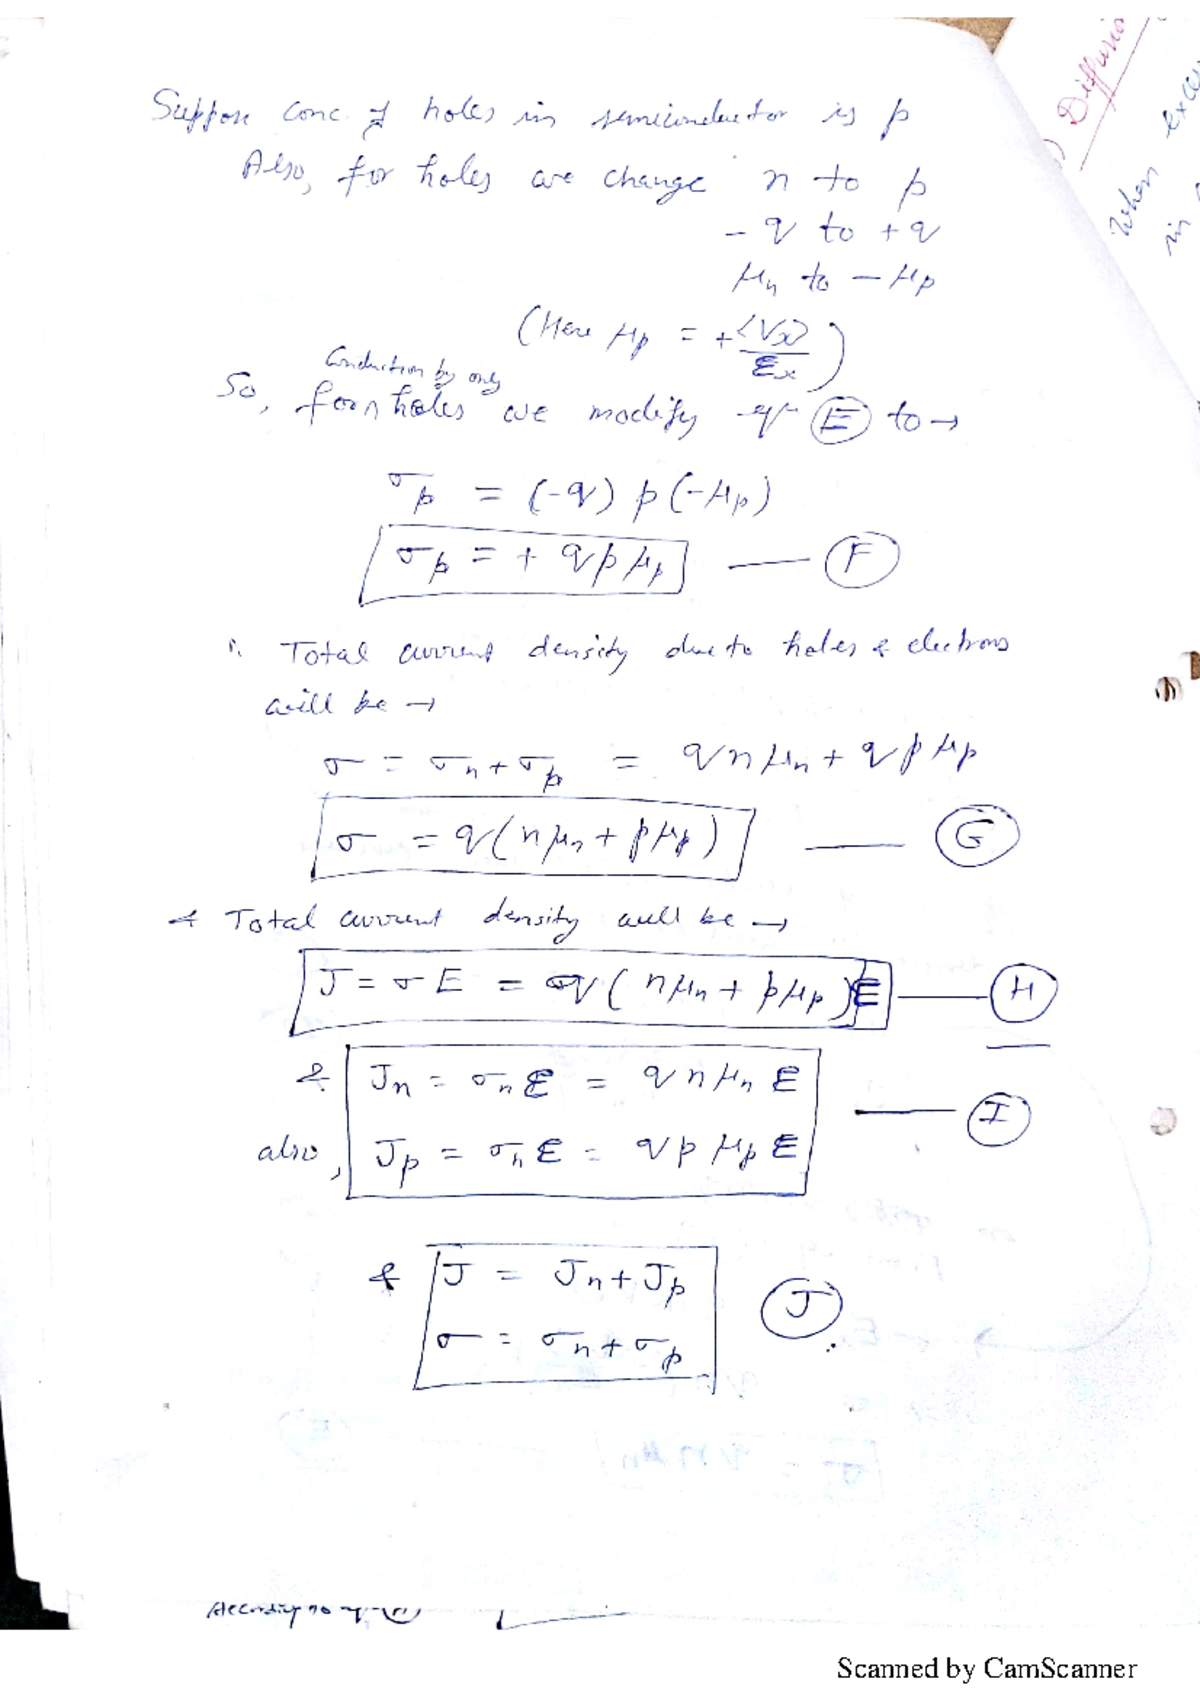 Suppose conc. of holes in semiconductor is p
Also, for holes we change n to p
- q to + q
μn to - μp
(Here μp = + <Vx> / Ex)
Conduction by only
So, for holes we modify eqn (E) to →
σp = (-q) p (-μp)
σp = + q p μp — (F)
∴ Total current density due to holes & electrons
will be →
σ = σn + σp = q n μn + q p μp
σ = q ( n μn + p μp ) — (G)
& Total current density will be →
J = σ E = q ( n μn + p μp ) E — (H)
& Jn = σn E = q n μn E
— (I)
also, Jp = σn E = q p μp E
& J = Jn + Jp
(J)
σ = σn + σp
Diffusion
When
in
According to
Scanned by CamScanner